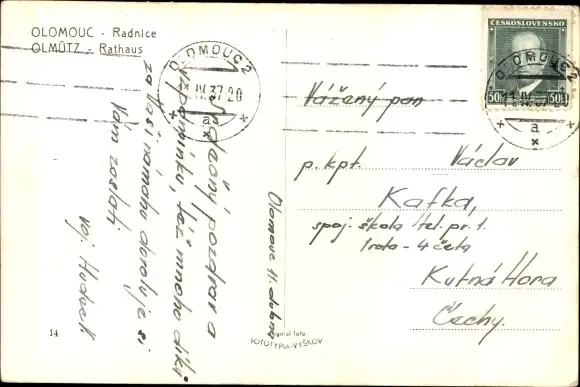 OLOMOUC - Radnice
OLMÜTZ - Rathaus
OLOMOUC 2
IV.37.20
a
ČESKOSLOVENSKO
50h 50h
OLOMOUC 2
11.IV.37
a
pozdrav a
vzpomínku, též mnoho díků
za Vaši námahu dovoluje si
Vám zaslati
voj. Hudeck
Olomouc 11. dubna
Vážený pan
p. kpt. Václav
Kafka,
spoj. škola tel. pr. 1.
1 rota - 4 četa
Kutná Hora
Čechy.
14
foto
FOTOTYPIA-VYŠKOV